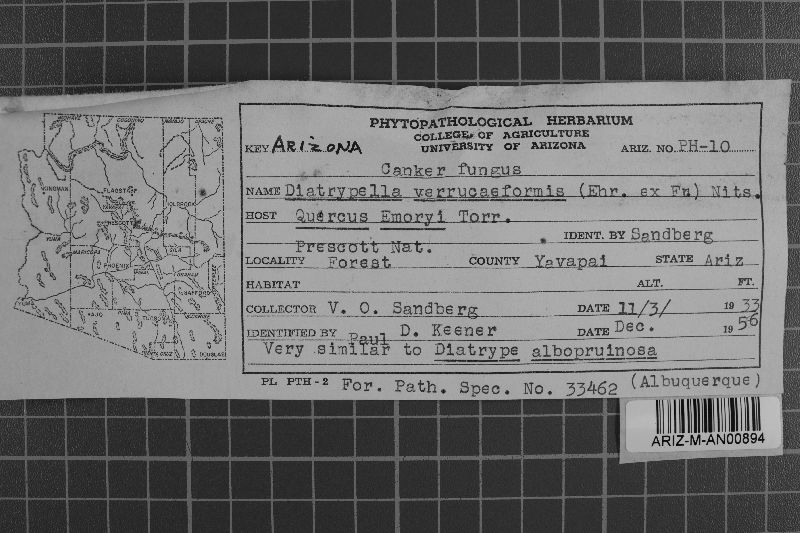 PHYTOPATHOLOGICAL HERBARIUM
COLLEGE OF AGRICULTURE
KEY ARIZONA UNIVERSITY OF ARIZONA ARIZ. NO. PH-10
Canker fungus
NAME Diatrypella verrucaeformis (Ehr. ex Fn) Nits.
HOST Quercus Emoryi Torr.
IDENT. BY Sandberg
Prescott Nat.
LOCALITY Forest COUNTY Yavapai STATE Ariz
HABITAT ALT. FT.
COLLECTOR V. O. Sandberg DATE 11/3/ 1933
IDENTIFIED BY Paul D. Keener DATE Dec. 1956
Very similar to Diatrype albopruinosa
PL PTH-2 For. Path. Spec. No. 33462 (Albuquerque)
ARIZ-M-AN00894
KINGMAN
FLAGSTAFF
HOLBROOK
PRESCOTT
YUMA
MARICOPA
PHOENIX
GILA
SAFFORD
DOUGLAS